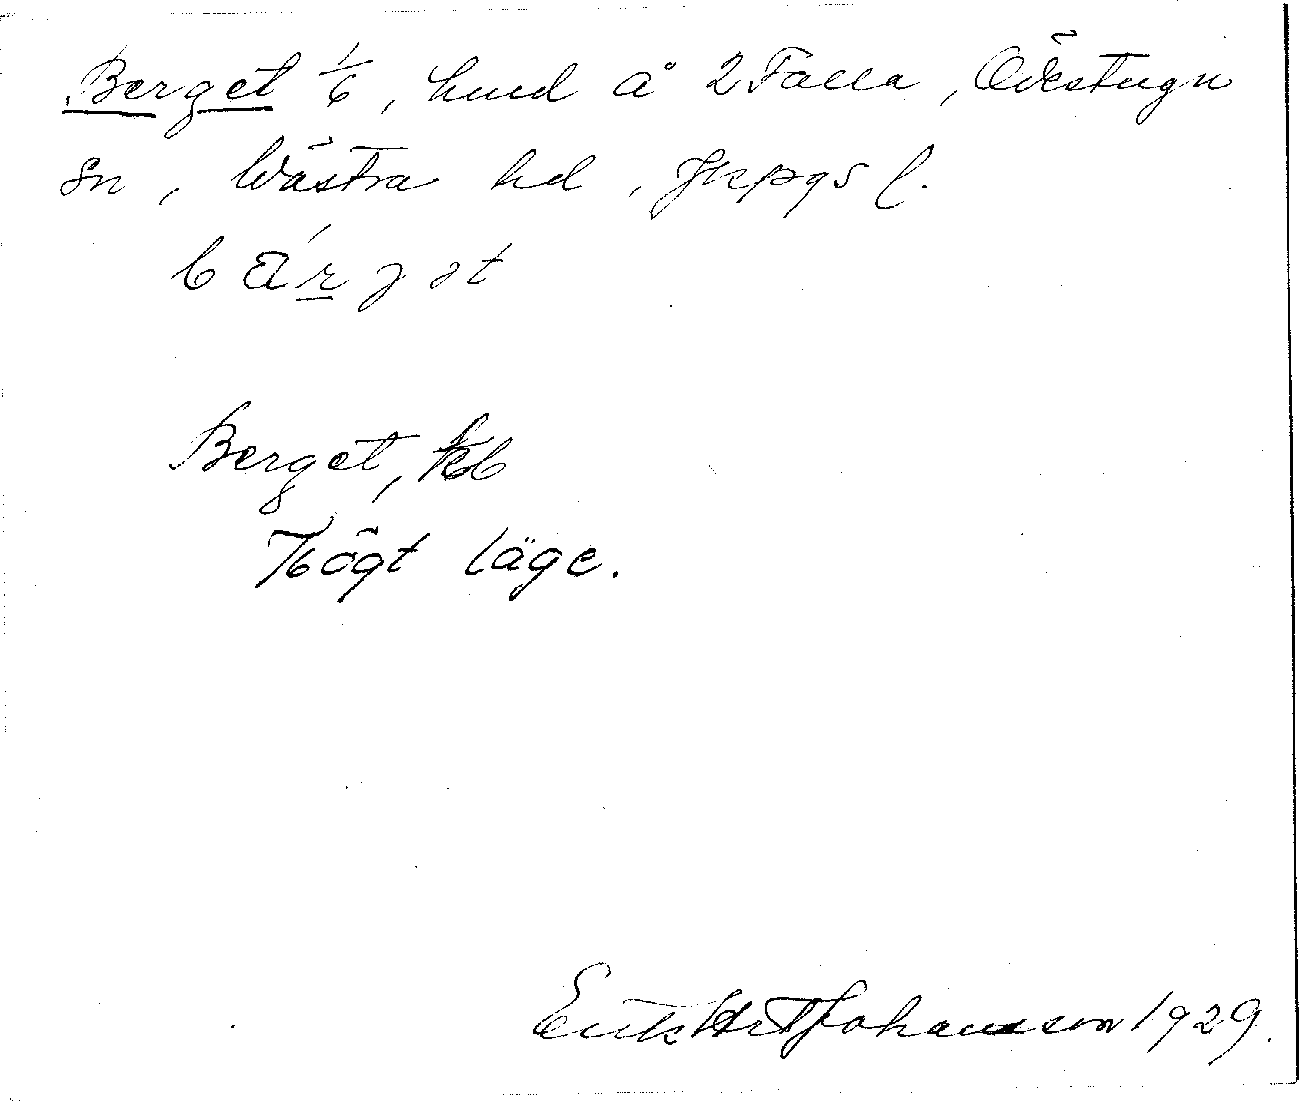 Berget 1/6, hmd å 2 Falla, Ökestugn
sn, Västra hd, Jkpgs l.
bärjət
Berget, kb
Högt läge.
Erik Johansson 1929.